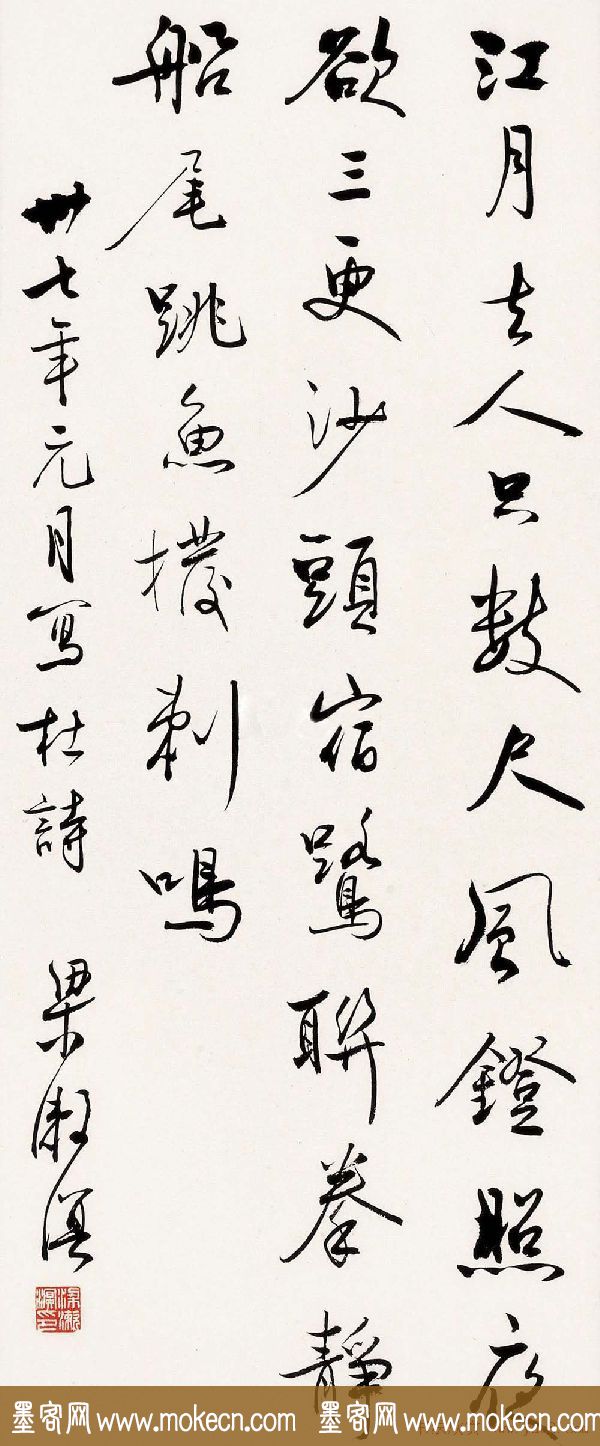 江月去人只數尺風鐙照夜
欲三更沙頭宿鷺聯拳靜
船尾跳魚撥剌鳴
卅七年元月寫杜詩 梁漱溟
梁漱溟印
墨客网 www.mokecn.com 墨客网 www.mokecn.com